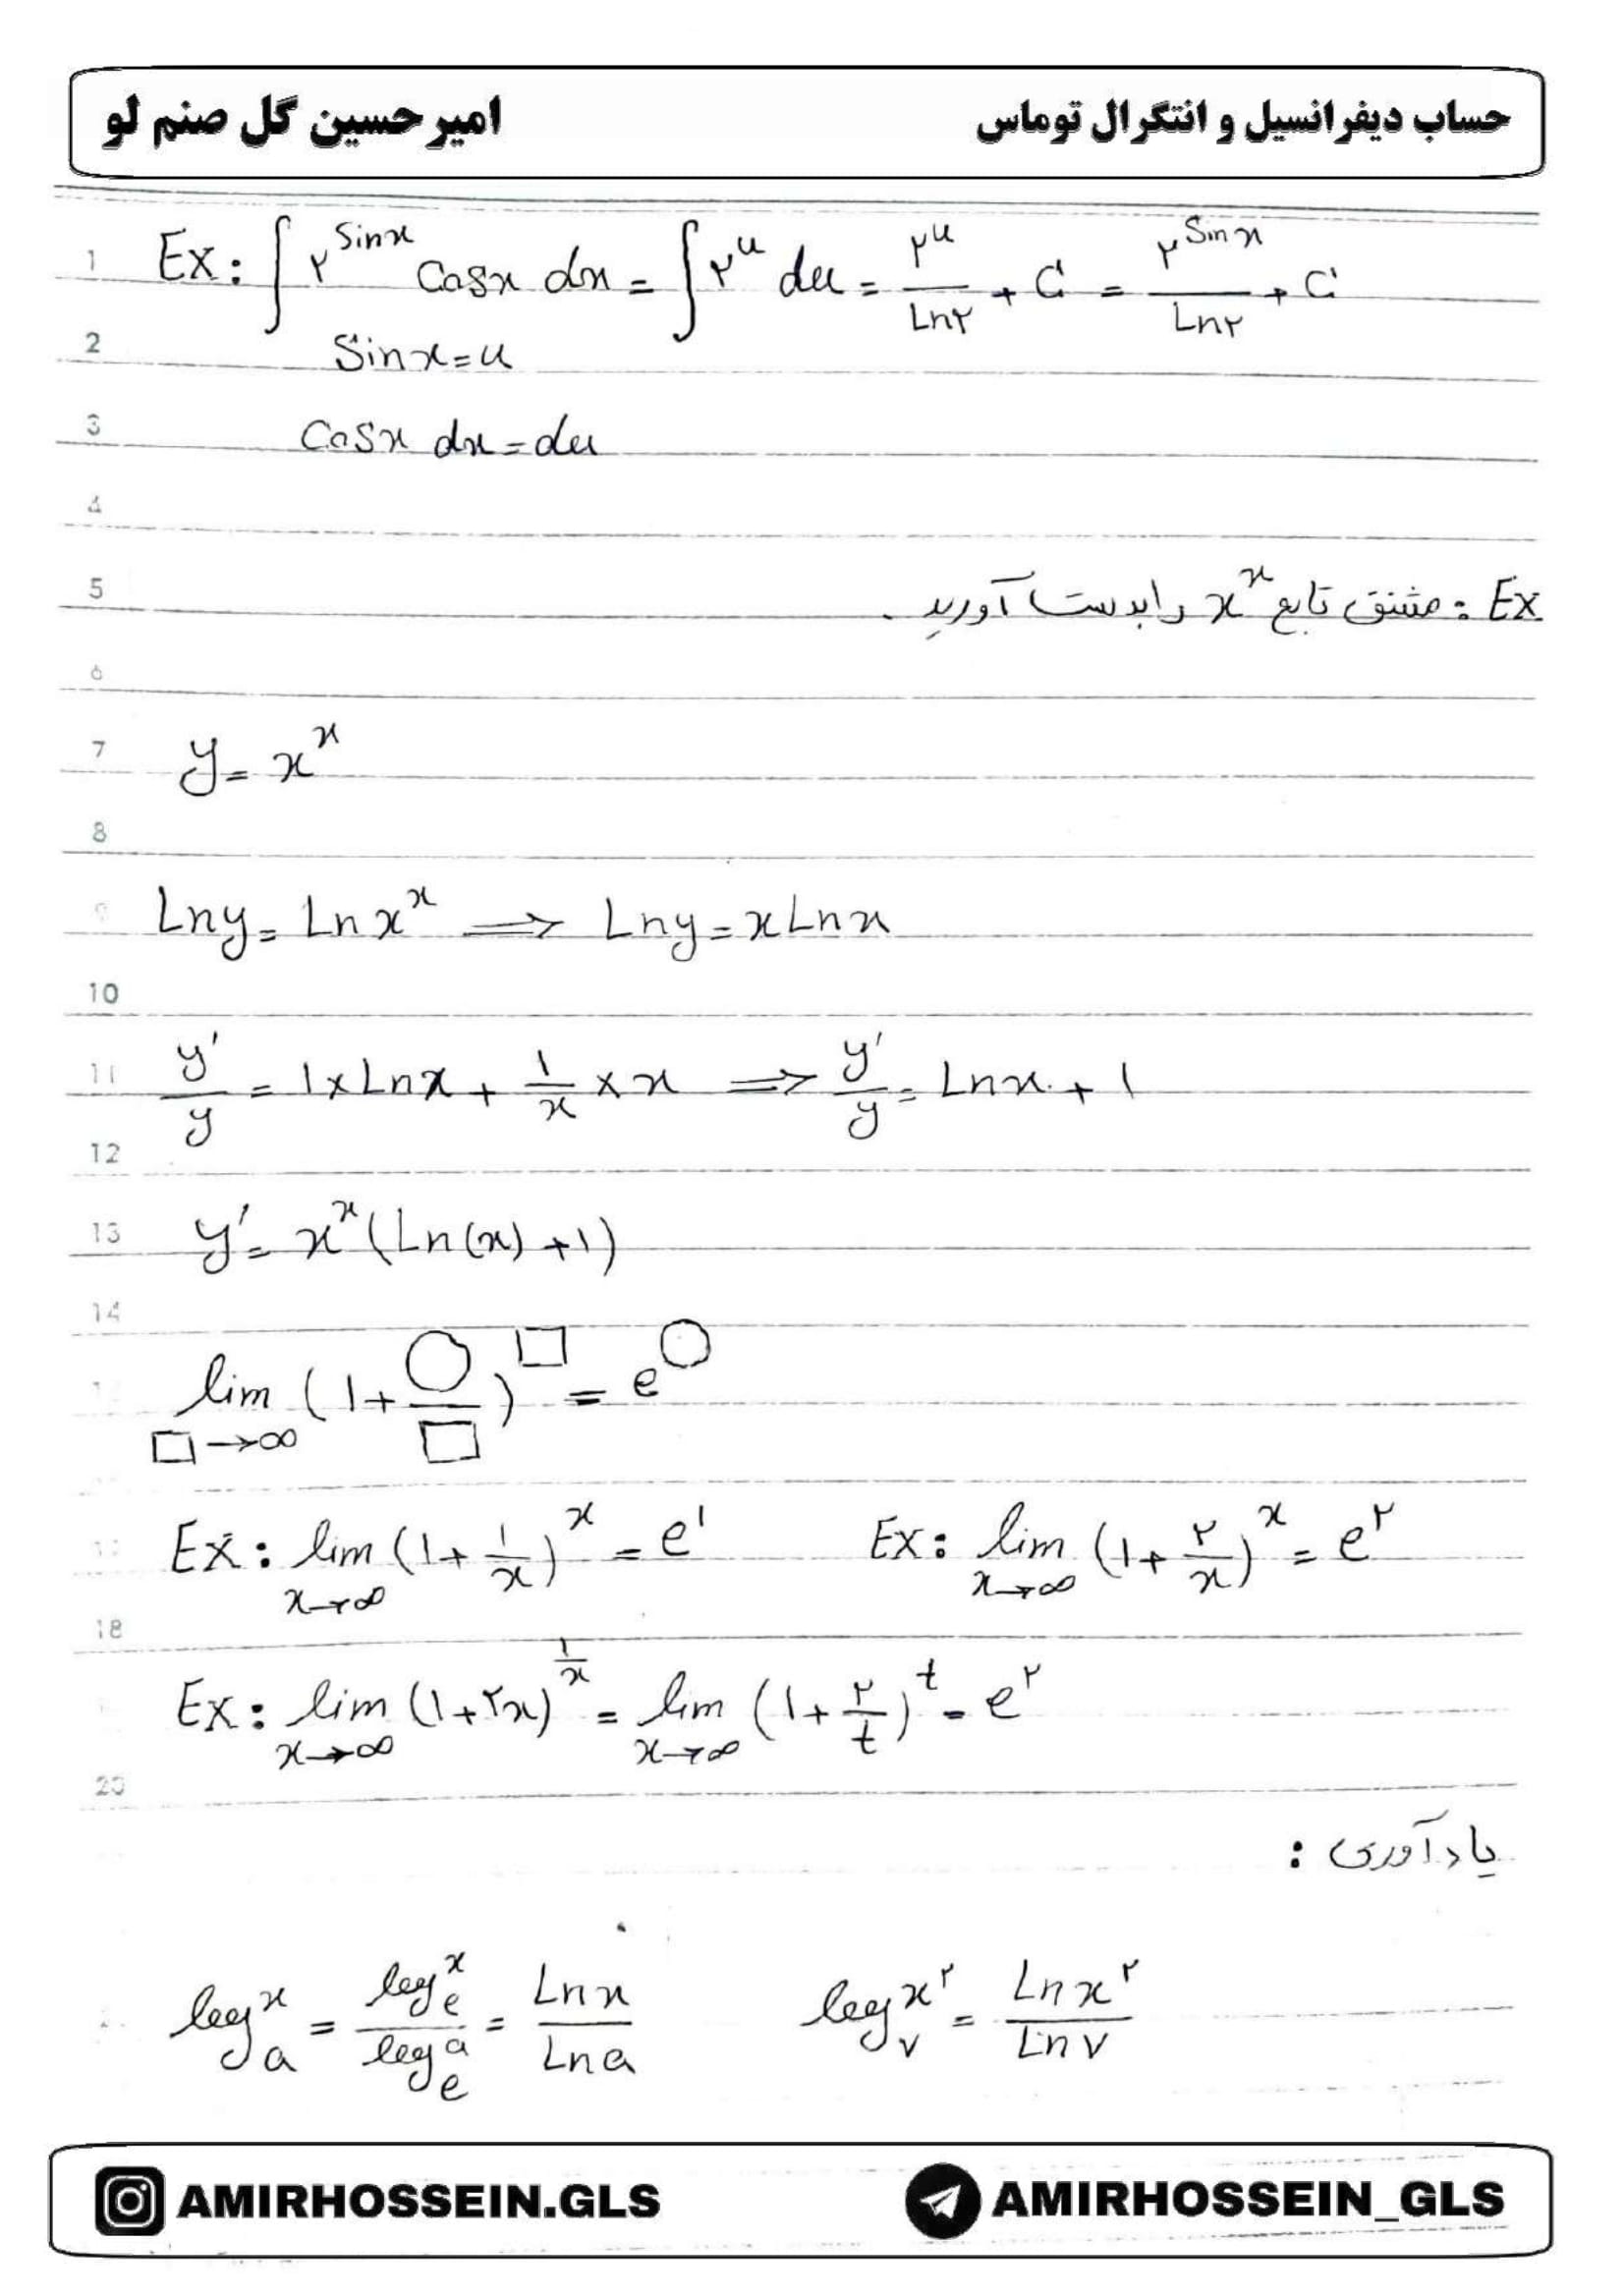 حساب دیفرانسیل و انتگرال توماس امیرحسین گل صنم لو
1 Ex: ∫ ۲^Sinx Cosx dx = ∫ ۲^u du = ۲^u / Ln۲ + C = ۲^Sinx / Ln۲ + C
2 Sinx = u
3 Cosx dx = du
4
5 Ex: مشتق تابع x^x را بدست آورید.
6
7 y = x^x
8
9 Lny = Lnx^x ⇒ Lny = xLnx
10
11 y'/y = 1×Lnx + 1/x × x ⇒ y'/y = Lnx + 1
12
13 y' = x^x (Ln(x) + 1)
14
lim □→∞ (1 + ○/□)^□ = e^○
Ex: lim x→∞ (1 + 1/x)^x = e^1 Ex: lim x→∞ (1 + ۲/x)^x = e^۲
18
Ex: lim x→∞ (1 + ۲x)^(1/x) = lim x→∞ (1 + ۲/t)^t = e^۲
20
یادآوری :
log_a^x = log_e^x / log_e^a = Lnx / Lna log_۷ x^۲ = Lnx^۲ / Ln۷
AMIRHOSSEIN.GLS AMIRHOSSEIN_GLS